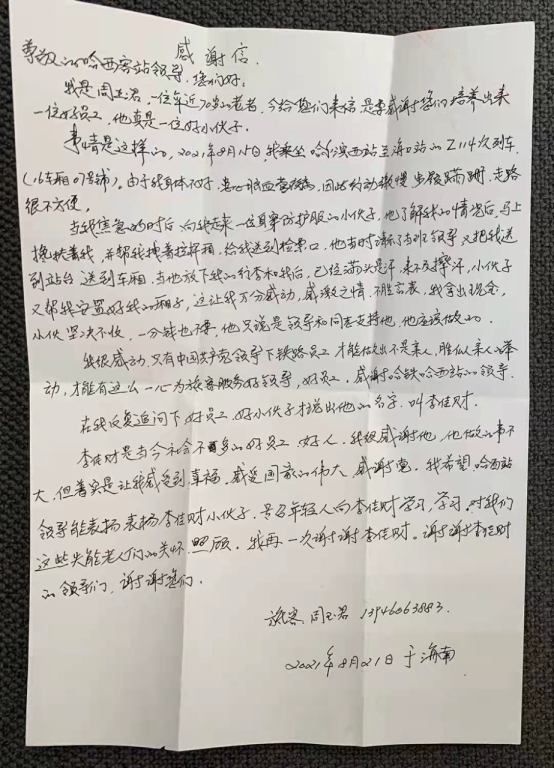 感谢信
尊敬的哈西客站领导,您们好:
我是周玉君,一位年近70岁的老者,今给您们来信是要感谢您们培养出来
一位好员工,他真是一位好小伙子.
事情是这样的,2021年8月15日,我乘坐哈尔滨西站至海口站的Z114次列车
(16车厢07号铺).由于我身体不好,患心脑血管疾病,因此行动缓慢步履蹒跚,走路
很不方便.
当我焦急的时后,向我走来一位身穿防护服的小伙子,他了解我的情况后,马上
搀扶着我,并帮我携着拉杆箱,给我送到检票口,他当时请示了当班领导又把我送
到站台,送到车厢,当他放下我的行李和我后,已经满头是汗,来不及擦汗,小伙子
又帮我安置好我的厢子,这让我万分感动,感激之情,不胜言表,我拿出现金,
小伙坚决不收,一分钱也不要,他只说是领导和同志支持他,他应该做的.
我很感动,只有中国共产党领导下铁路员工,才能做出不是亲人,胜似亲人的举
动,才能有这么一心为旅客服务好领导,好员工,感谢哈铁哈西站的领导.
在我反复追问下好员工,好小伙子才说出他的名字,叫李佳财.
李佳财是当今社会不多的好员工,好人,我很感谢他,他做的事不
大,但着实是让我感受到幸福,感受国家的伟大,感谢党.我希望哈西站
领导能表扬表扬李佳财小伙子,号召年轻人向李佳财学习,学习对我们
这些失能老人们的关怀,照顾,我再一次谢谢李佳财.谢谢李佳财
的领导们,谢谢您们.
旅客 周玉君 13946063883.
2021年8月21日于海南